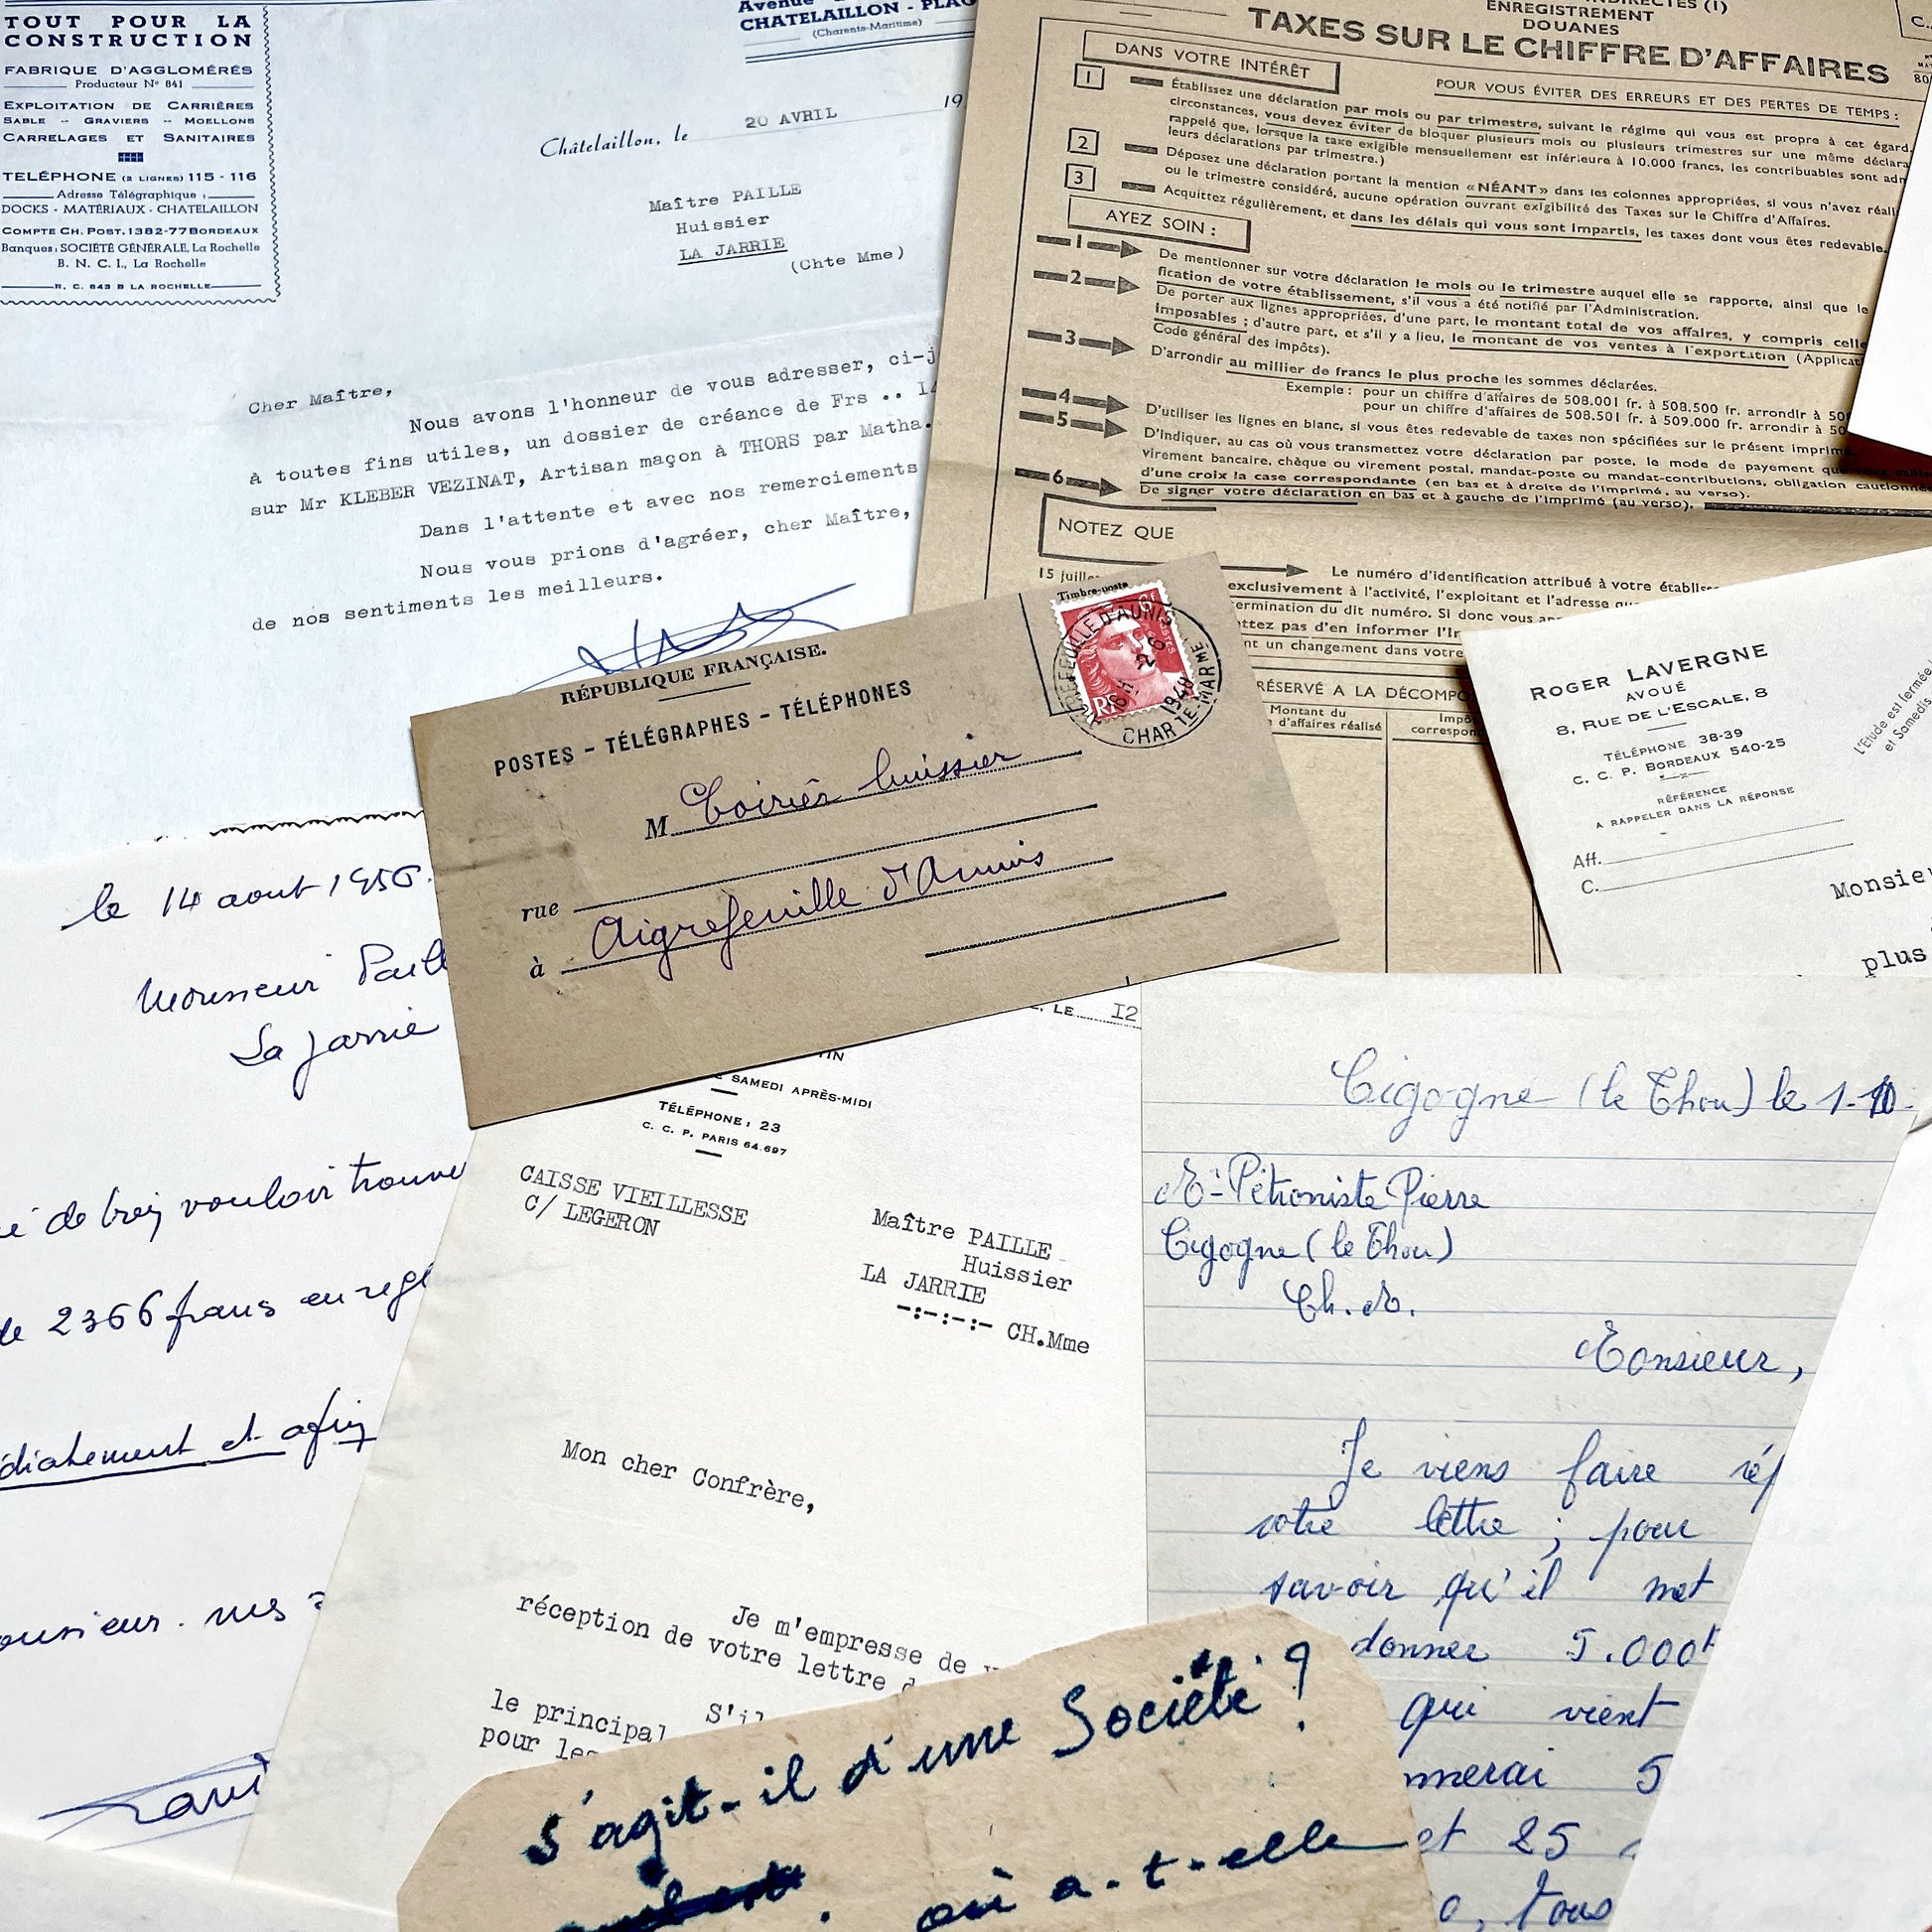 TOUT POUR LA
CONSTRUCTION
FABRIQUE D'AGGLOMÉRÉS
Producteur N° 841
EXPLOITATION DE CARRIÈRES
SABLE -- GRAVIERS -- MOELLONS
CARRELAGES ET SANITAIRES
TELÉPHONE (2 LIGNES) 115 - 116
Adresse Télégraphique :
DOCKS - MATÉRIAUX - CHATELAILLON
COMPTE CH. POST. 1382-77 BORDEAUX
Banques : SOCIÉTÉ GÉNÉRALE, La Rochelle
B. N. C. I., La Rochelle
R. C. 643 B LA ROCHELLE
Avenue
CHATELAILLON - PLAG
(Charente-Maritime)
Châtelaillon, le 20 AVRIL 19
Maître PAILLE
Huissier
LA JARRIE
(Chte Mme)
Cher Maître,
Nous avons l'honneur de vous adresser, ci-j
à toutes fins utiles, un dossier de créance de Frs .. I4
sur Mr KLEBER VEZINAT, Artisan maçon à THORS par Matha.
Dans l'attente et avec nos remerciements
Nous vous prions d'agréer, cher Maître,
de nos sentiments les meilleurs.
ENREGISTREMENT
DOUANES
TAXES SUR LE CHIFFRE D'AFFAIRES
DANS VOTRE INTÉRÊT
POUR VOUS ÉVITER DES ERREURS ET DES PERTES DE TEMPS :
1 Établissez une déclaration par mois ou par trimestre, suivant le régime qui vous est propre à cet égard.
circonstances, vous devez éviter de bloquer plusieurs mois ou plusieurs trimestres sur une même déclara
rappelé que, lorsque la taxe exigible mensuellement est inférieure à 10.000 francs, les contribuables sont adm
leurs déclarations par trimestre.)
2 Déposez une déclaration portant la mention «NÉANT» dans les colonnes appropriées, si vous n'avez réali
ou le trimestre considéré, aucune opération ouvrant exigibilité des Taxes sur le Chiffre d'Affaires.
3 Acquittez régulièrement, et dans les délais qui vous sont impartis, les taxes dont vous êtes redevable.
AYEZ SOIN :
1 De mentionner sur votre déclaration le mois ou le trimestre auquel elle se rapporte, ainsi que le
fication de votre établissement, s'il vous a été notifié par l'Administration.
2 De porter aux lignes appropriées, d'une part, le montant total de vos affaires, y compris celle
Imposables ; d'autre part, et s'il y a lieu, le montant de vos ventes à l'exportation (Applicat
Code général des impôts).
3 D'arrondir au millier de francs le plus proche les sommes déclarées.
Exemple : pour un chiffre d'affaires de 508.001 fr. à 508.500 fr. arrondir à 50
pour un chiffre d'affaires de 508.501 fr. à 509.000 fr. arrondir à 50
4 D'utiliser les lignes en blanc, si vous êtes redevable de taxes non spécifiées sur le présent imprimé
5 D'indiquer, au cas où vous transmettez votre déclaration par poste, le mode de payement que
virement bancaire, chèque ou virement postal, mandat-poste ou mandat-contributions, obligation cautionné
d'une croix la case correspondante (en bas et à droite de l'imprimé, au verso).
6 De signer votre déclaration en bas et à gauche de l'imprimé (au verso).
NOTEZ QUE
15 juille
Le numéro d'identification attribué à votre établiss
exclusivement à l'activité, l'exploitant et l'adresse
termination du dit numéro. Si donc vous
ttez pas d'en informer l'I
nt un changement dans votre
RÉSERVÉ A LA DÉCOMPO
Montant du
d'affaires réalisé
Impô
correspon
RÉPUBLIQUE FRANÇAISE.
POSTES - TÉLÉGRAPHES - TÉLÉPHONES
Timbre-poste
AIGREFEUILLE D'AUNIS
1948
CHARTE-MARME
RF
M Coirier huissier
rue
à Aigrefeuille d'Aunis
ROGER LAVERGNE
AVOUÉ
8, RUE DE L'ESCALE, 8
TÉLÉPHONE 38-39
C. C. P. BORDEAUX 540-25
RÉFÉRENCE
A RAPPELER DANS LA RÉPONSE
Aff.
C.
L'Étude est fermée
et Samedis
Monsieu
plus
le 14 aout 1956.
Monsieur Paill
La Jarrie
de bien vouloir trouve
de 2366 francs en regl
diatement et afin
LE I2
SAMEDI APRÈS-MIDI
TÉLÉPHONE : 23
C. C. P. PARIS 64.697
CAISSE VIEILLESSE
C/ LEGERON
Maître PAILLE
Huissier
LA JARRIE
-:-:-:- CH.Mme
Mon cher Confrère,
Je m'empresse de
réception de votre lettre d
S'il
le principal
pour les
Cigogne (le Thou) le 1-10-
M. Pétroniste Pierre
Cigogne (le Thou)
Ch. M.
Monsieur,
Je viens faire rép
votre lettre ; pour
savoir qu'il met
donner 5.000f
qui vient
nnerai 5
et 25
tous
s'agit-il d'une Société ?
où a-t-elle